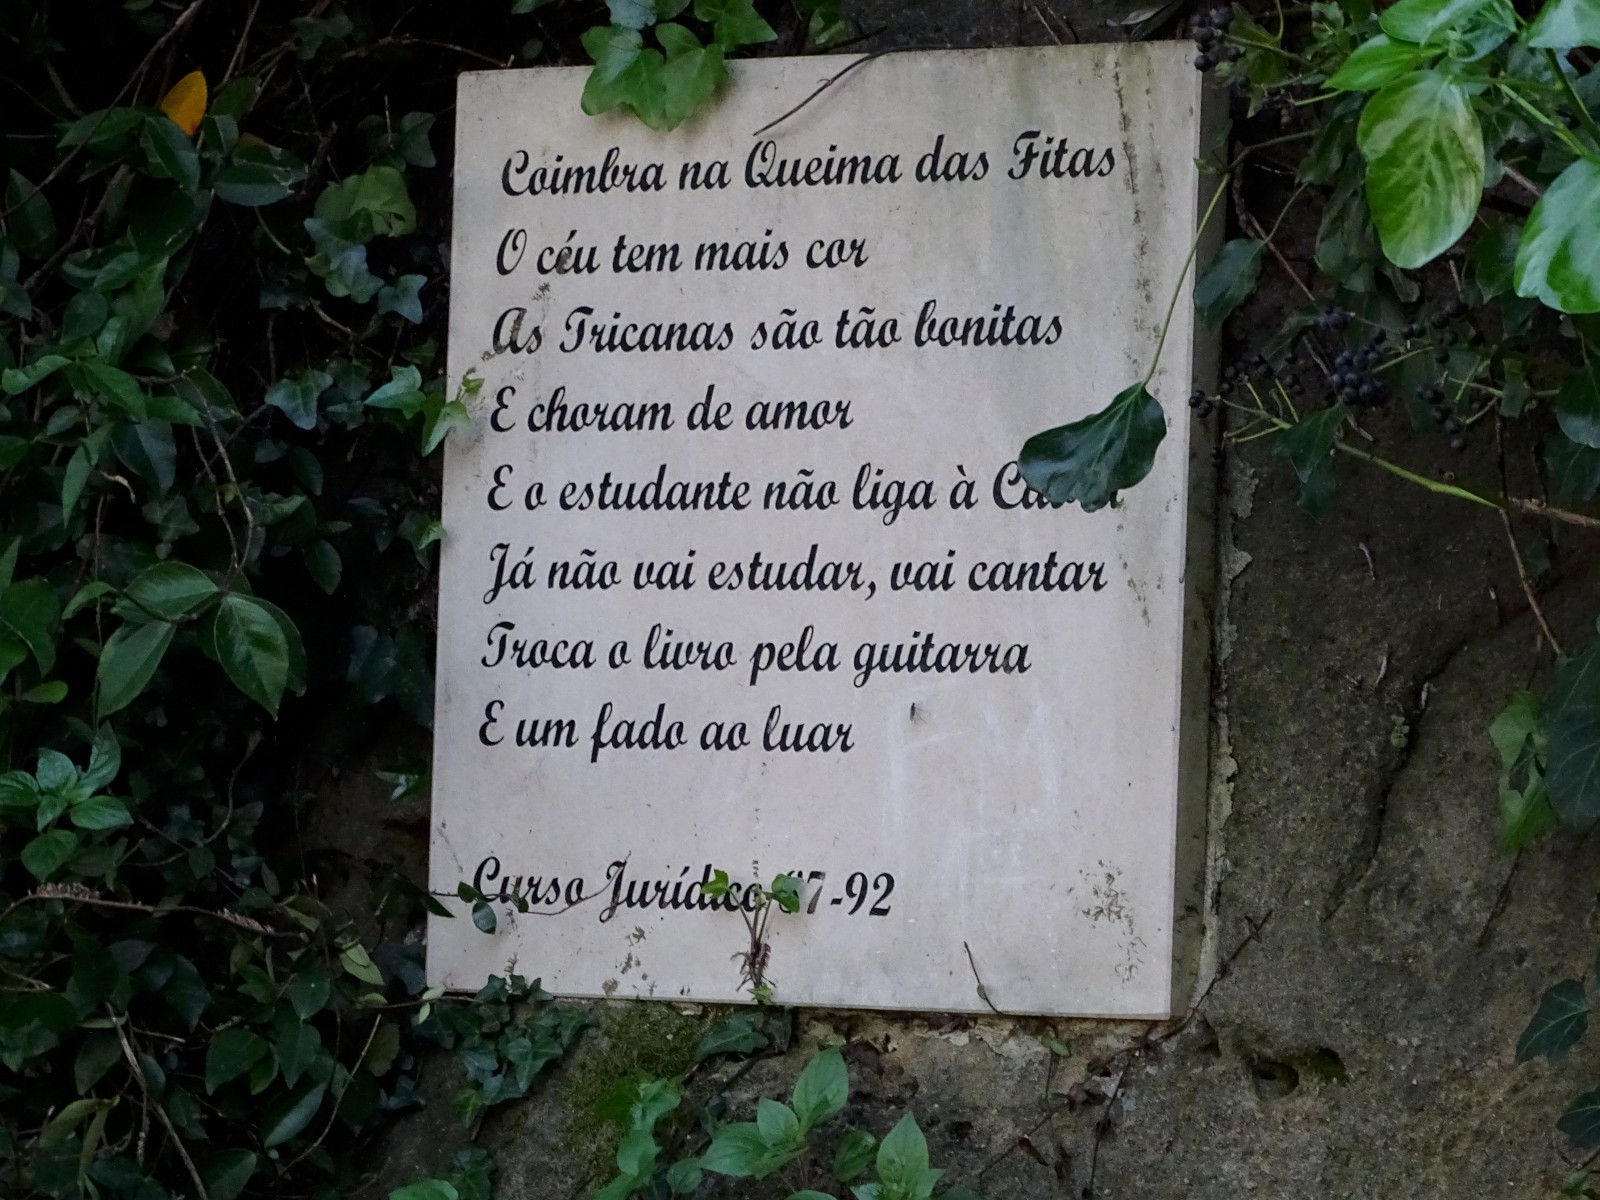 Coimbra na Queima das Fitas
O céu tem mais cor
As Tricanas são tão bonitas
E choram de amor
E o estudante não liga à
Já não vai estudar, vai cantar
Troca o livro pela guitarra
E um fado ao luar
Curso Jurídico 87-92